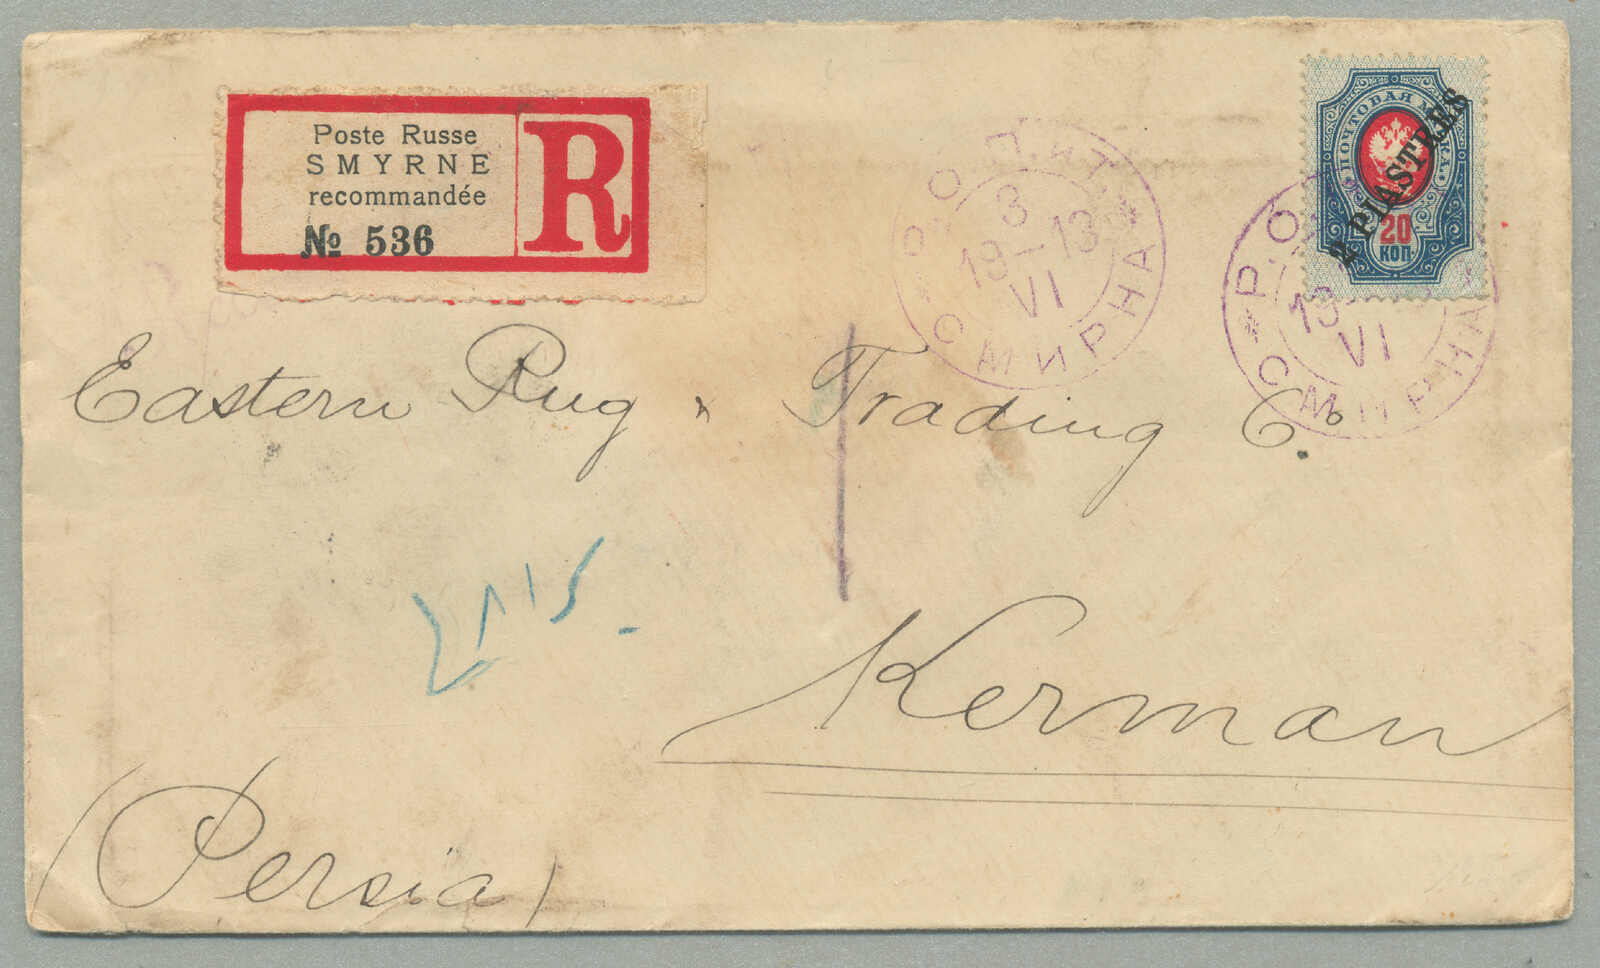 Poste Russe
SMYRNE
recommandée
№ 536
R
Р.О.П.и Т.
3
19–13
VI
СМИРНА
ПОЧТОВАЯ МАРКА
2 PIASTRES
20
КОП.
Р.О.
19
VI
СМИРНА
Eastern Rug & Trading Co.
Kerman
(Persia)